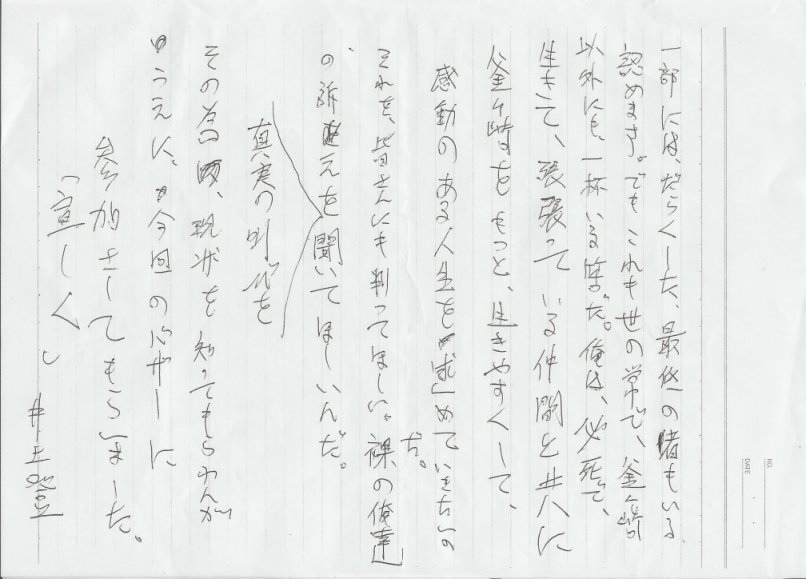 NO.
DATE
一部には、だらくした、最低の者もいる
認めます。でもこれも世の常で、釜ヶ崎
以外にも、一杯いる筈だ。俺は、必死で、
生きて、張張って いる仲間と共に
釜ヶ崎をもっと、生きやすくして、
感動のある人生を求めていきたいの
だ。
それを、皆さんにも判ってほしい。裸の俺達
の訴えを聞いてほしいんだ。
真実の叫びを
その為、現状を知ってもらわんが
ゆうえに。今回のバザーに
参加さしてもらいました。
「宜しく」
井上登